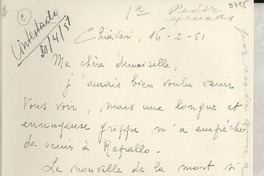 1a
Contestado
20/4/51
Chiavari, 16-2-51
Ma chère demoiselle,
j'aurais bien voulu venir
Vous voir, mais une longue et
ennuyeuse grippe m'a empêchée
de venir à Rapallo.
La nouvelle de la mort si